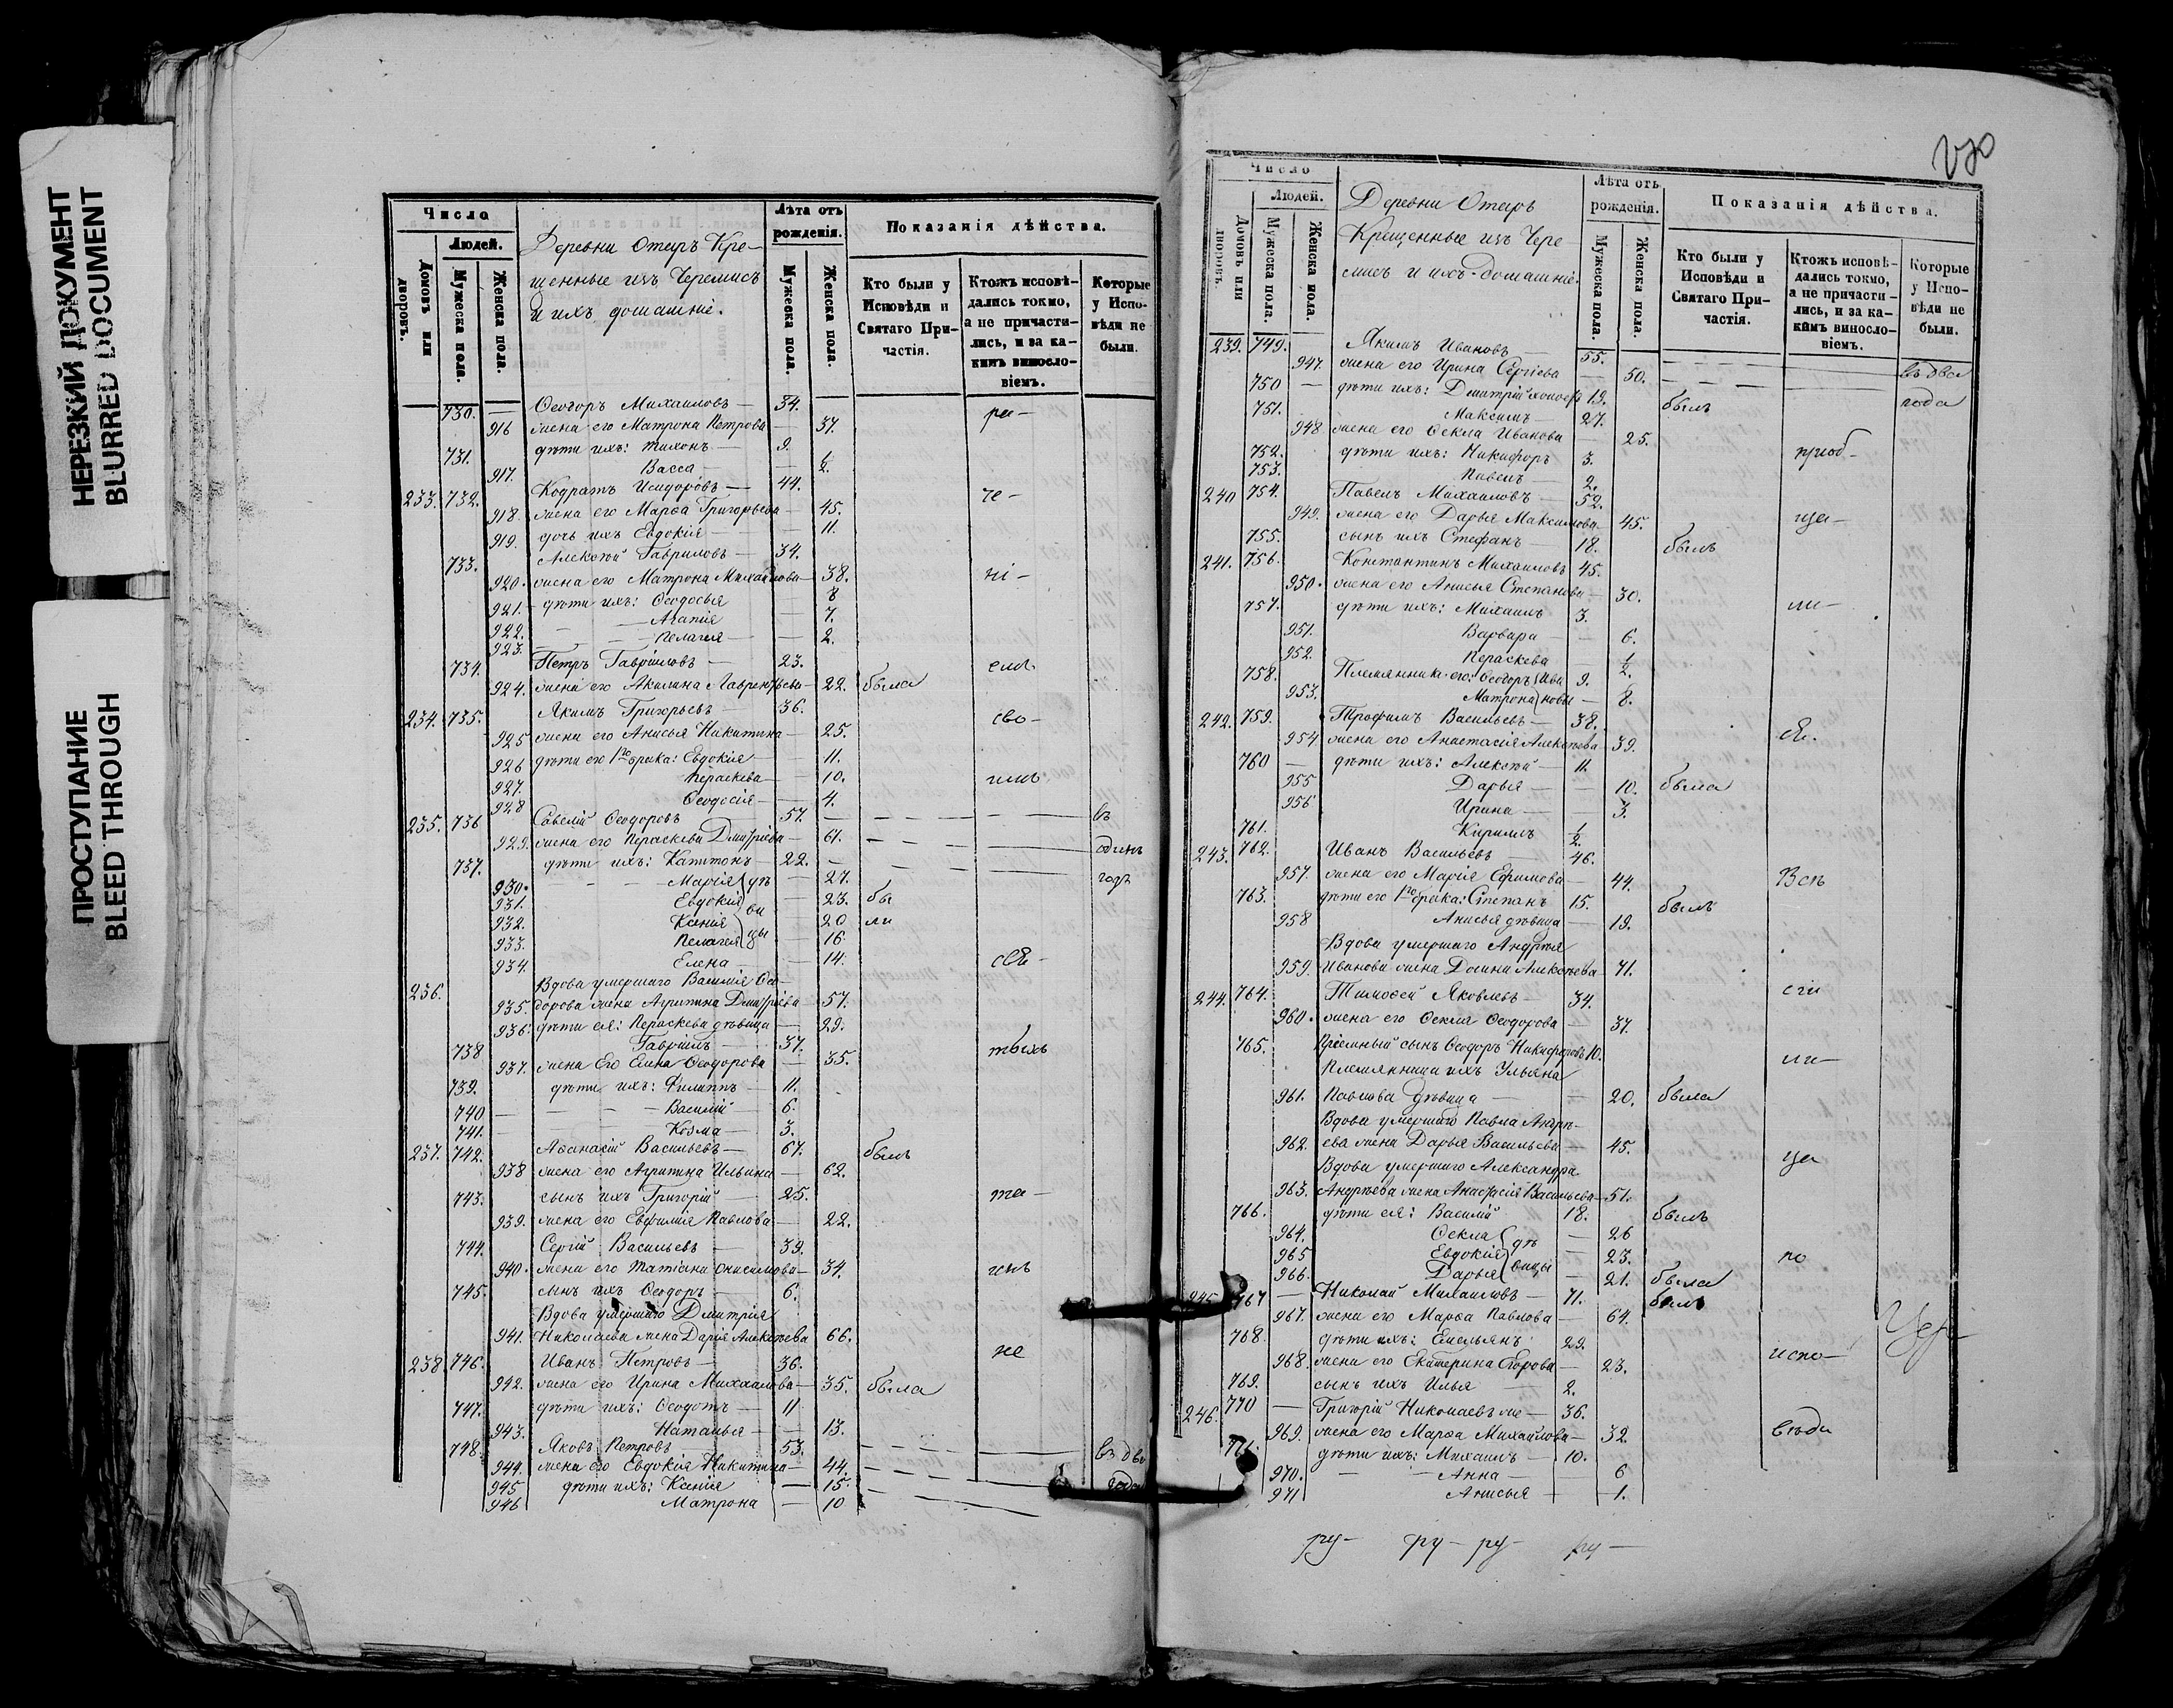 НЕРЕЗКИЙ ДОКУМЕНТ
BLURRED DOCUMENT
ПРОСТУПАНИЕ
BLEED THROUGH
Число
Людей.
Домовъ или дворовъ.
Мужеска пола.
Женска пола.
Деревни Отаръ Кре-
щенные изъ Черемисъ
и ихъ домашніе.
Лѣта отъ рожденія.
Мужеска пола.
Женска пола.
Показанія дѣйства.
Кто были у Исповѣди и Святаго Причастія.
Ктожъ исповѣдались токмо, а не причастились, и за какимъ винословіемъ.
Которые у Исповѣди не были.
730. — Ѳеодоръ Михаиловъ — 34. ра-
916 жена его Матрона Петрова — 37.
731. дѣти ихъ: Тихонъ — 9.
917. Васса — 1/2.
233. 732. Кодратъ Исидоровъ — 44. че-
918. жена его Марѳа Григорьева — 45.
919. дочь ихъ Евдокія — 11.
733. Алексѣй Гавриловъ — 34.
920. жена его Матрона Михайлова — 38. ні-
921. дѣти ихъ: Ѳеодосья — 8
922. — Агапія — 7.
923. — Пелагея — 2.
734. Петръ Гавріиловъ — 23. емъ
924. жена его Акилина Лаврентьева — 22. была
234. 735. Якимъ Григорьевъ — 36. сво-
925 жена его Анисья Никитина — 25.
926 дѣти его 1го брака: Евдокія — 11.
927. Пераскева — 10. имъ
928 Ѳеодосія — 4.
235. 736 Савелій Ѳеодоровъ 57. — — — въ
929. жена его Пераскева Дмитріева — 61. — — — одинъ
737. дѣти ихъ: Капитонъ — 22. — — — годъ
930. — Марія дѣ — 27.
931. Евдокія — 23. бы
932. Ксенія ви — 20 ли
933. Пелагея цы — 16.
934. Елена — 14. свя-
236. Вдова умершаго Василія Ѳео-
935. дорова жена Агрипина Дмитріева — 57.
936. дѣти ея: Пераскева дѣвица — 29.
738 Гавріилъ — 37. тыхъ
937. жена Его Елена Ѳеодорова — 35.
739. дѣти ихъ: Филиппъ — 11.
740 — — — Василій — 6.
741. — — — Козма — 3.
237. 742. Аѳанасій Васильевъ — 67. былъ
938 жена его Агрипина Ильина — 62.
743. сынъ ихъ Григорій — 25. та-
939. жена его Евфимія Павлова — 22.
744. Сергій Васильевъ — 39.
940. жена его Татіана Онисимова — 34. инъ
745. сынъ ихъ Ѳеодоръ — 6.
Вдова умершаго Дмитрія
941. Николаева жена Дарія Алексѣева 66.
238 746. Иванъ Петровъ — 36. не
942. жена его Ирина Михаилова — 35. была
747. дѣти ихъ: Ѳеодотъ — 11
943. Наталья — 13.
748. Яковъ Петровъ 53. — — — въ два
944. жена его Евдокія Никитина — 44. — — — года
945 дѣти ихъ: Ксенія — 15. — — —
946 Матрона — 10
Число
Людей.
Домовъ или дворовъ.
Мужеска пола.
Женска пола.
Деревни Отаръ
Крещенные изъ Чере-
мисъ и ихъ домашніе.
Лѣта отъ рожденія.
Мужеска пола.
Женска пола.
Показанія дѣйства.
Кто были у Исповѣди и Святаго Причастія.
Ктожъ исповѣдались токмо, а не причастились, и за какимъ винословіемъ.
Которые у Исповѣди не были.
239. 749. Якимъ Ивановъ 55. — — —
947. жена его Ирина Сергіева 50. — — — въ два
750 — дѣти ихъ: Дмитрій 19. былъ года
751. Максимъ 27.
948 жена его Ѳекла Иванова — 25.
752. дѣти ихъ: Никифоръ 3. пріоб-
753. Павелъ — 2.
240 754. Павелъ Михаиловъ — 52.
949. жена его Дарья Максимова — 45. ща-
755. сынъ ихъ Стефанъ — 18. былъ
241. 756. Константинъ Михаиловъ 45.
950. жена его Анисья Степанова — 30.
757. дѣти ихъ: Михаилъ 3. ли-
951. Варвара — 6.
952. Пераскева — 1/2.
758. Племянники его: Ѳеодоръ Ива 9.
953. Матрона новы — 8.
242. 759. Трофимъ Васильевъ — 38.
954 жена его Анастасія Алексѣева — 39. ся.
760 — дѣти ихъ: Алексѣй — 11.
955 Дарья — 10. была
956 Ирина — 3.
761. Кирилъ 1/2.
243. 762. Иванъ Васильевъ 46.
957. жена его Марія Ефимова — 44. Всѣ
763. дѣти его 1го брака: Степанъ 15. былъ
958 Анисья дѣвица — 19.
Вдова умершаго Андрея
959. Иванова жена Домна Алексѣева 71.
244. 764. Тимоѳей Яковлевъ — 34. сіи
960. жена его Ѳекла Ѳеодорова — 37.
765. Пріемный сынъ Ѳеодоръ Никифоровъ 10.
Племянница ихъ Ульяна ли-
961. Павлова дѣвица — 20. была
Вдова умершаго Павла Андре-
962. ева жена Дарья Васильева — 45.
Вдова умершаго Александра ца
963. Андреева жена Анастасія Васильева 51.
766. дѣти ея: Василій 18. былъ
964. Ѳекла дѣ — 26
965 Евдокія — 23. по
966. Дарья вицы — 21. была
245. 767 — Николай Михаиловъ — 71. былъ
967. жена его Марѳа Павлова — 64.
768. дѣти ихъ: Емельянъ 29.
968. жена его Екатерина Егорова — 23. испо-
769. сынъ ихъ Илья — 2.
246. 770 — Григорій Николаевъ — 36.
969. жена его Марѳа Михайлова — 32 вѣди
771. дѣти ихъ: Михаилъ — 10.
970. — — Анна — 6
971 Анисья — 1.
ру- ру- ру- ру-